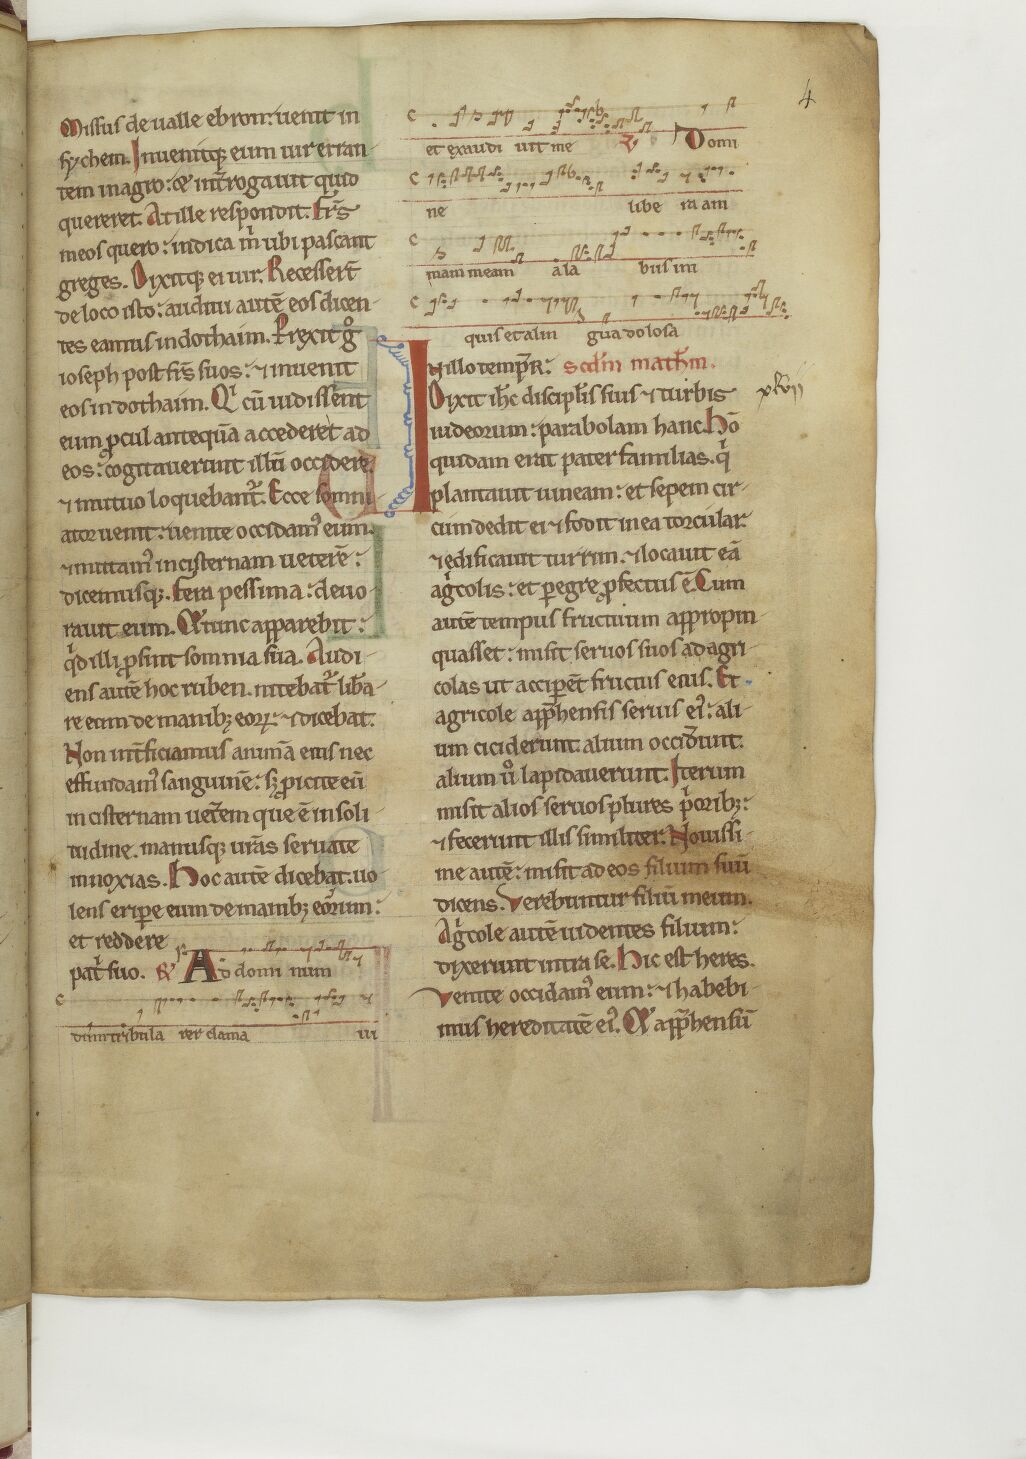 Missus de ualle ebron: uenit in
sychem. Inuenitq; eum uir erran-
tem in agro: & int̄rogauit quid
quereret. At ille respondit. Fr̄s
meos quero: indica m̄ ubi pascant
greges. Dixitq; ei uir. Recesser̄t
de loco isto: audiui autē eos dicen-
tes eamus in dothaim. Prexit g͛
ioseph post fr̄s suos: ⁊ inuenit
eos in dothaim. Qͥ cū uidissent
eum ꝓcul antequā accederet ad
eos: cogitauerunt illū occidere
⁊ mutuo loquebant᷑. Ecce somni-
ator uenit: uenite occidam᷒ eum.
⁊ mittam᷒ in cisternam ueterē:
dicemusq;. Fera pessima: deuo-
rauit eum. & tunc apparebit:
qͥd illi ꝓsint somnia sua. Audi-
ens autē hoc ruben. nitebat᷑ lib̄a-
re eum de manib; eoꝝ: ⁊ dicebat.
Non int̄ficiamus animā eius nec
effundam᷒ sanguinē: sꝫ ꝓicite eū
in cisternam uet̄em que ē in soli-
tudine. manusq; ur̄as seruate
innoxias. Hoc autē dicebat. uo-
lens eripe eum de manib; eorum:
et reddere
pat͛i suo. Ad domi num
dum tribula rer clama ui
4
et exaudi uit me ℣ Domi
ne libe ra am
mam meam ala bus im
quis et alin gua dolosa
In illo tempr̄: scdm math̄m.
Dixit ih̄c discipl̄is suis ⁊ turbis
iudeorum: parabolam hanc. Hō
quidam erat pater familias. qͥ
plantauit uineam: et sepem cir-
cumdedit ei ⁊ fodit in ea torcular.
⁊ edificauit turrim. ⁊ locauit eā
agͥcolis: et pegre ꝓfectus ē. Cum
autē tempus fructuum appropin-
quasset: misit seruos suos ad agri-
colas ut acciper̄t fructus eius. Et
agricole app̄hensis seruis ei᷒: ali-
um ciciderunt. alium occid̄unt.
alium ů lapidauerunt. Iterum
misit alios seruos plures pͥorib;:
⁊ fecerunt illis similiter. Nouissi-
me autē: misit ad eos filium suū
dicens. Verebuntur filiū meum.
Agͥcole autē uidentes filium:
dixerunt intra se. Hic est heres.
Venite occidam᷒ eum: ⁊ habebi-
mus hereditatē ei᷒. & app̄hensū